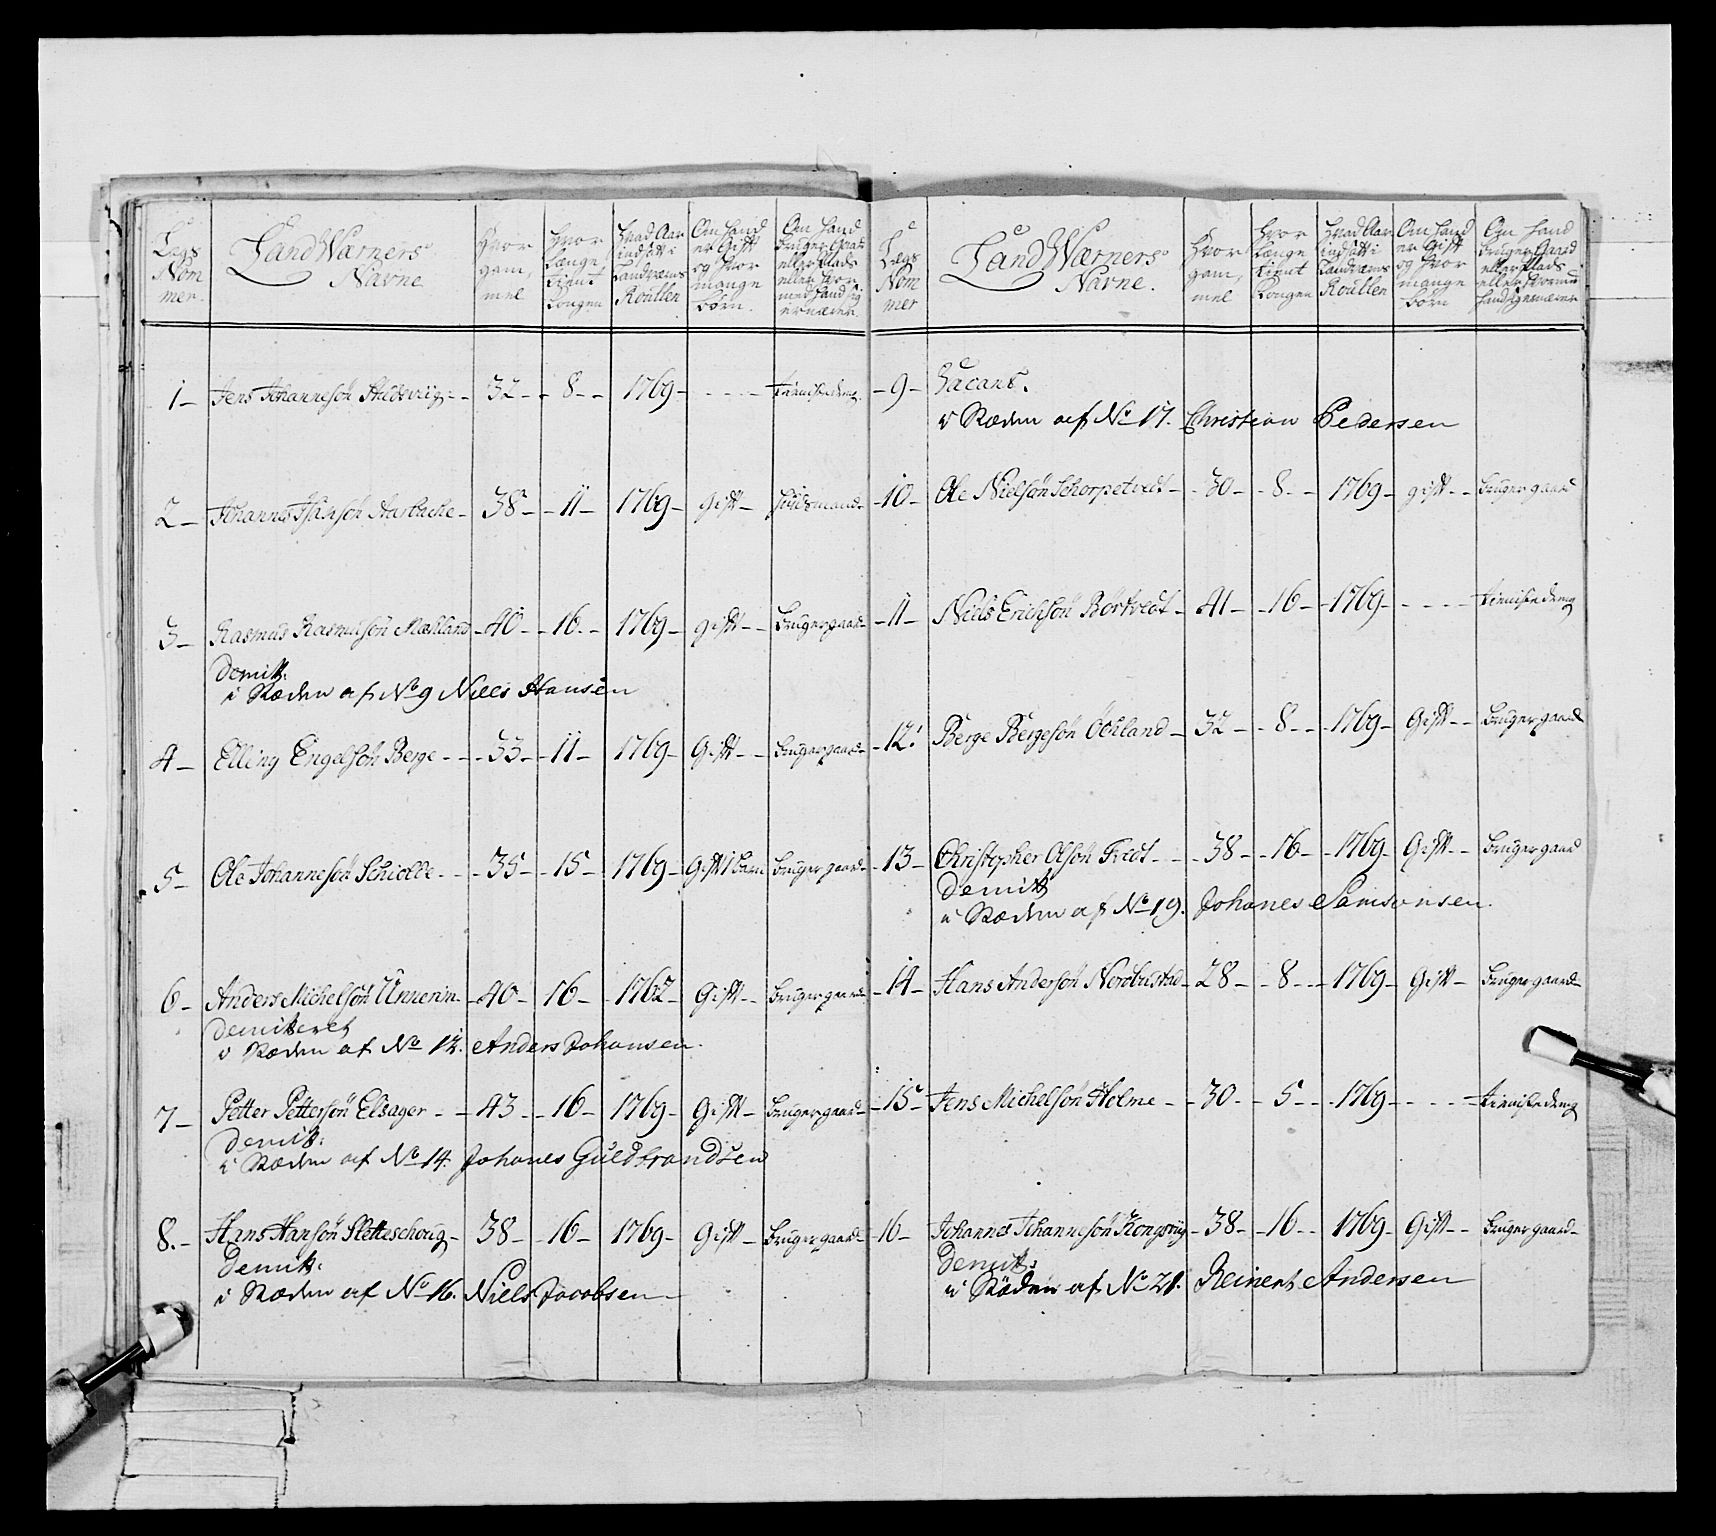 Lægs Nom mer.
Land Wærners Navne
Hvor gam, mel
Hvor længe tient Kongen
Hvad Aar indsatt i Landværns Roullen
Om hand er Gift og hvor mange børn.
Om Hand bruger Gaard eller Plads eller hvor med hand sig ernærer.
1 - Jens Johannesøn - 32 - 8 - 1769 - - - - tieniste dreng
2 - Johannes Hansøn Aarbache - 38 - 11 - 1769 - Gift - huusmand
3 - Rasmus Rasmusøn Mæhland - 40 - 16 - 1769 - gift - bruger gaard
Demitt:
i Stæden af No 9 Niels Hansen
4 - Elling Engelsøn Berge - 33 - 11 - 1769 - Gift - bruger gaard
5 - Ole Johannesøn Schiolde - 35 - 15 - 1769 - Gift 1 barn bruger gaard
6 - Anders Michelsøn - 40 - 16 - 1762 - Gift - bruger gaard
Demitteret
i Stæden af No 12. Anders Johansen.
7 - Petter Pettersøn Elsager - 43 - 16 - 1769 - Gift - bruger gaard
Demitt:
i Stæden af No 14. Johanes Guldbrandsen
8. - Hans Hansøn Sletteschoug - 38 - 16 - 1769 - Gift - bruger gaard
Demitt:
i Stæden af No 16. Niels Jacobsen
Lægs Nom mer
Land Wærners Navne.
Hvor gam, mel
Hvor længe tient Kongen
Hvad Aar indsatt i Landværns Roullen
Om Hand er Gift og hvor mange børn
Om Hand bruger Gaard eller Plads eller hvormed hand sig ernærer
9 - Vacant.
i Stæden af No 17. Christian Pedersen
10 - Ole Nielsøn Schorpetvedt - 30 - 8 - 1769 - gift - bruger gaard
11 - Niels Erichsøn Rørtvedt - 41 - 16 - 1769 - - - - tieniste dreng
12. Berge Bergesøn Øchland - 32 - 8 - 1769 - Gift - bruger gaard
13 - Christopher Olsøn Tvedt - 38 - 16 - 1769 - Gift - bruger gaard
Demitt
i Stæden af No 19. Johanes Samsonsen.
14 - Hans Andersøn - 28 - 8 - 1769 - Gift - bruger gaard
15 - Jens Michelsøn Holme - 30 - 5 - 1769 - - - - tieniste dreng
16 - Johannes Johannesøn Kongsviig - 38 - 16 - 1769 - Gift - bruger gaard
Demitt:
i Stæden af No 21. Reinert Andersen